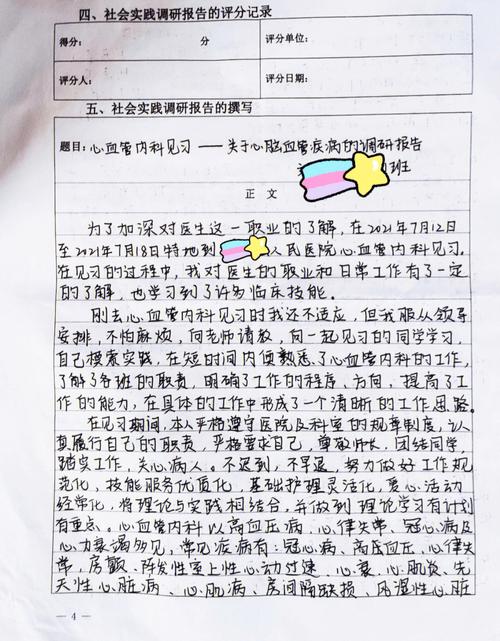 四、社会实践调研报告的评分记录
得分： 分 评分单位：
评分人： 评分日期：
五、社会实践调研报告的撰写
题目：心血管内科见习——关于心脑血管疾病的调研报告
班
正 文
为了加深对医生这一职业的了解，在2021年7月12日
至2021年7月18日特地到 人民医院心血管内科见习。
在见习的过程中，我对医生的职业和日常工作有了一定
的了解，也学习到了许多临床技能。
刚去心血管内科见习时我还不适应，但我服从领导
安排，不怕麻烦，向老师请教，向一起见习的同学学习，
自己摸索实践，在短时间内便熟悉了心血管内科的工作，
了解了各班的职责，明确了工作的程序、方向，提高了工
作的能力，在具体的工作中形成了一个清晰的工作思路。
在见习期间，本人严格遵守医院及科室的规章制度，认
真履行自己的职责，严格要求自己，尊敬师长，团结同学，
踏实工作，关心病人。不迟到，不早退，努力做好工作规
范化，技能服务优质化，基础护理灵活化，爱心活动
经常化，将理论与实践相结合，并做到理论学习有计划
有重点。心血管内科以高血压病，心律失常，冠心病及
心力衰竭多见，常见疾病有：冠心病、高血压、心律失
常，房颤、阵发性室上性心动过速、心衰、心肌炎、先
天性心脏病、心肌病、房间隔缺损、风湿性心脏
— 4 —